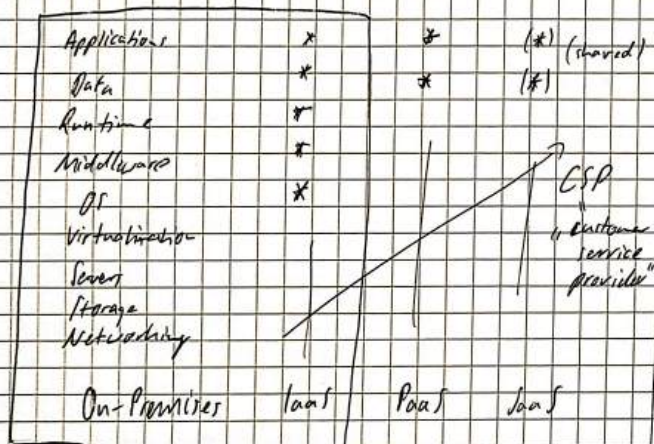 Applications * * (*) (shared)
Data * * (*)
Runtime *
Middleware *
OS *
Virtualization
Servers
Storage
Networking
CSP
"customer
service
provider"
On-Premises IaaS PaaS SaaS